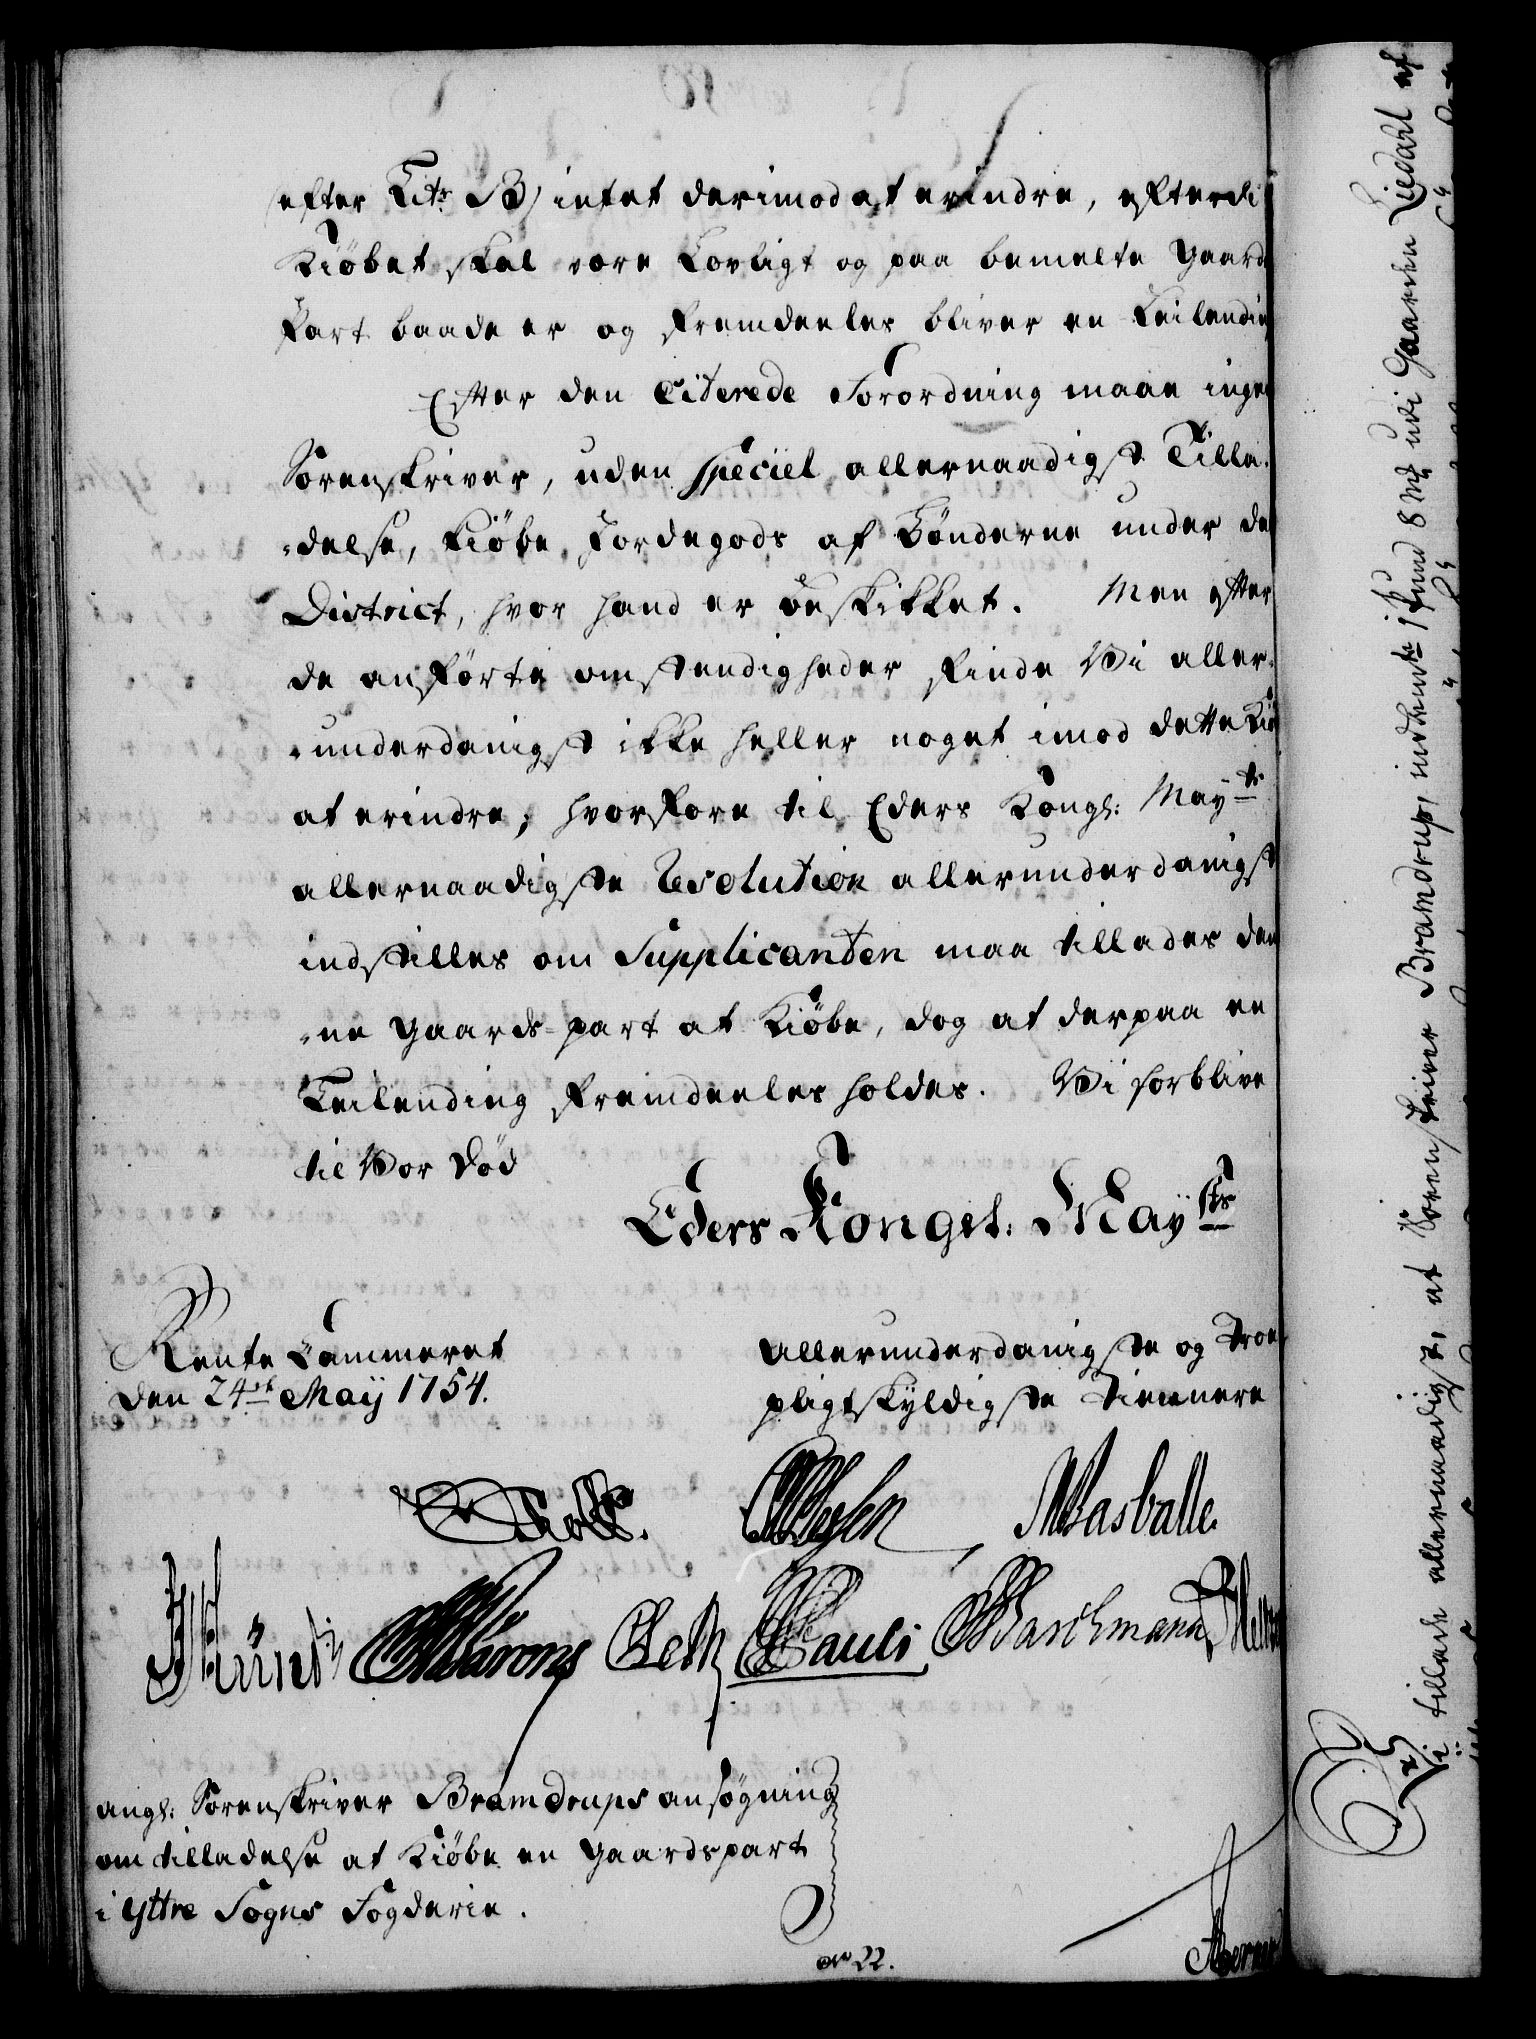 efter Litr B) intet derimod at erindre, efterdi
Kiöbet skal være Lovligt og paa bemelte Gaards
Part baade er og fremdeeles bliver en Leilending
Efter den Citerede Forordning maae ingen
Sorenskriver, uden speciel allernaadigst Tilla-
-delse, kiöbe Jordegods af Bönderne under det
District, hvor hand er beskikket. Men efter
de anförte omstendigheder finde Vi aller-
-underdanigst ikke heller noget imod dette Kiöb
at erindre; hvorfore til Eders Kongl: Mayts
allernaadigste Resolution allerunderdanigst
indstilles om Supplicanten maa tillades den-
-ne Gaards-part at Kiöbe, dog at derpaa en
Leilending fremdeeles holdes. Vi forblive
til Vor död
Eders Kongel: Mayts
Rente Cammeret
den 24de Maij 1754.
allerunderdanigste og troe
pligtskyldigste tienere
Holst.
Masballe.
Pauli
angl: Sorenskriver Bramdrups ansögning
om tilladelse at Kiöbe en Gaardspart
i Yttre Sogns Fogderie.
22.
Vi tillade allernaadigst, at Sorenskriver Bramdrup, indbemte 1 Pund 8 Mk udi Gaarden Liedahl af